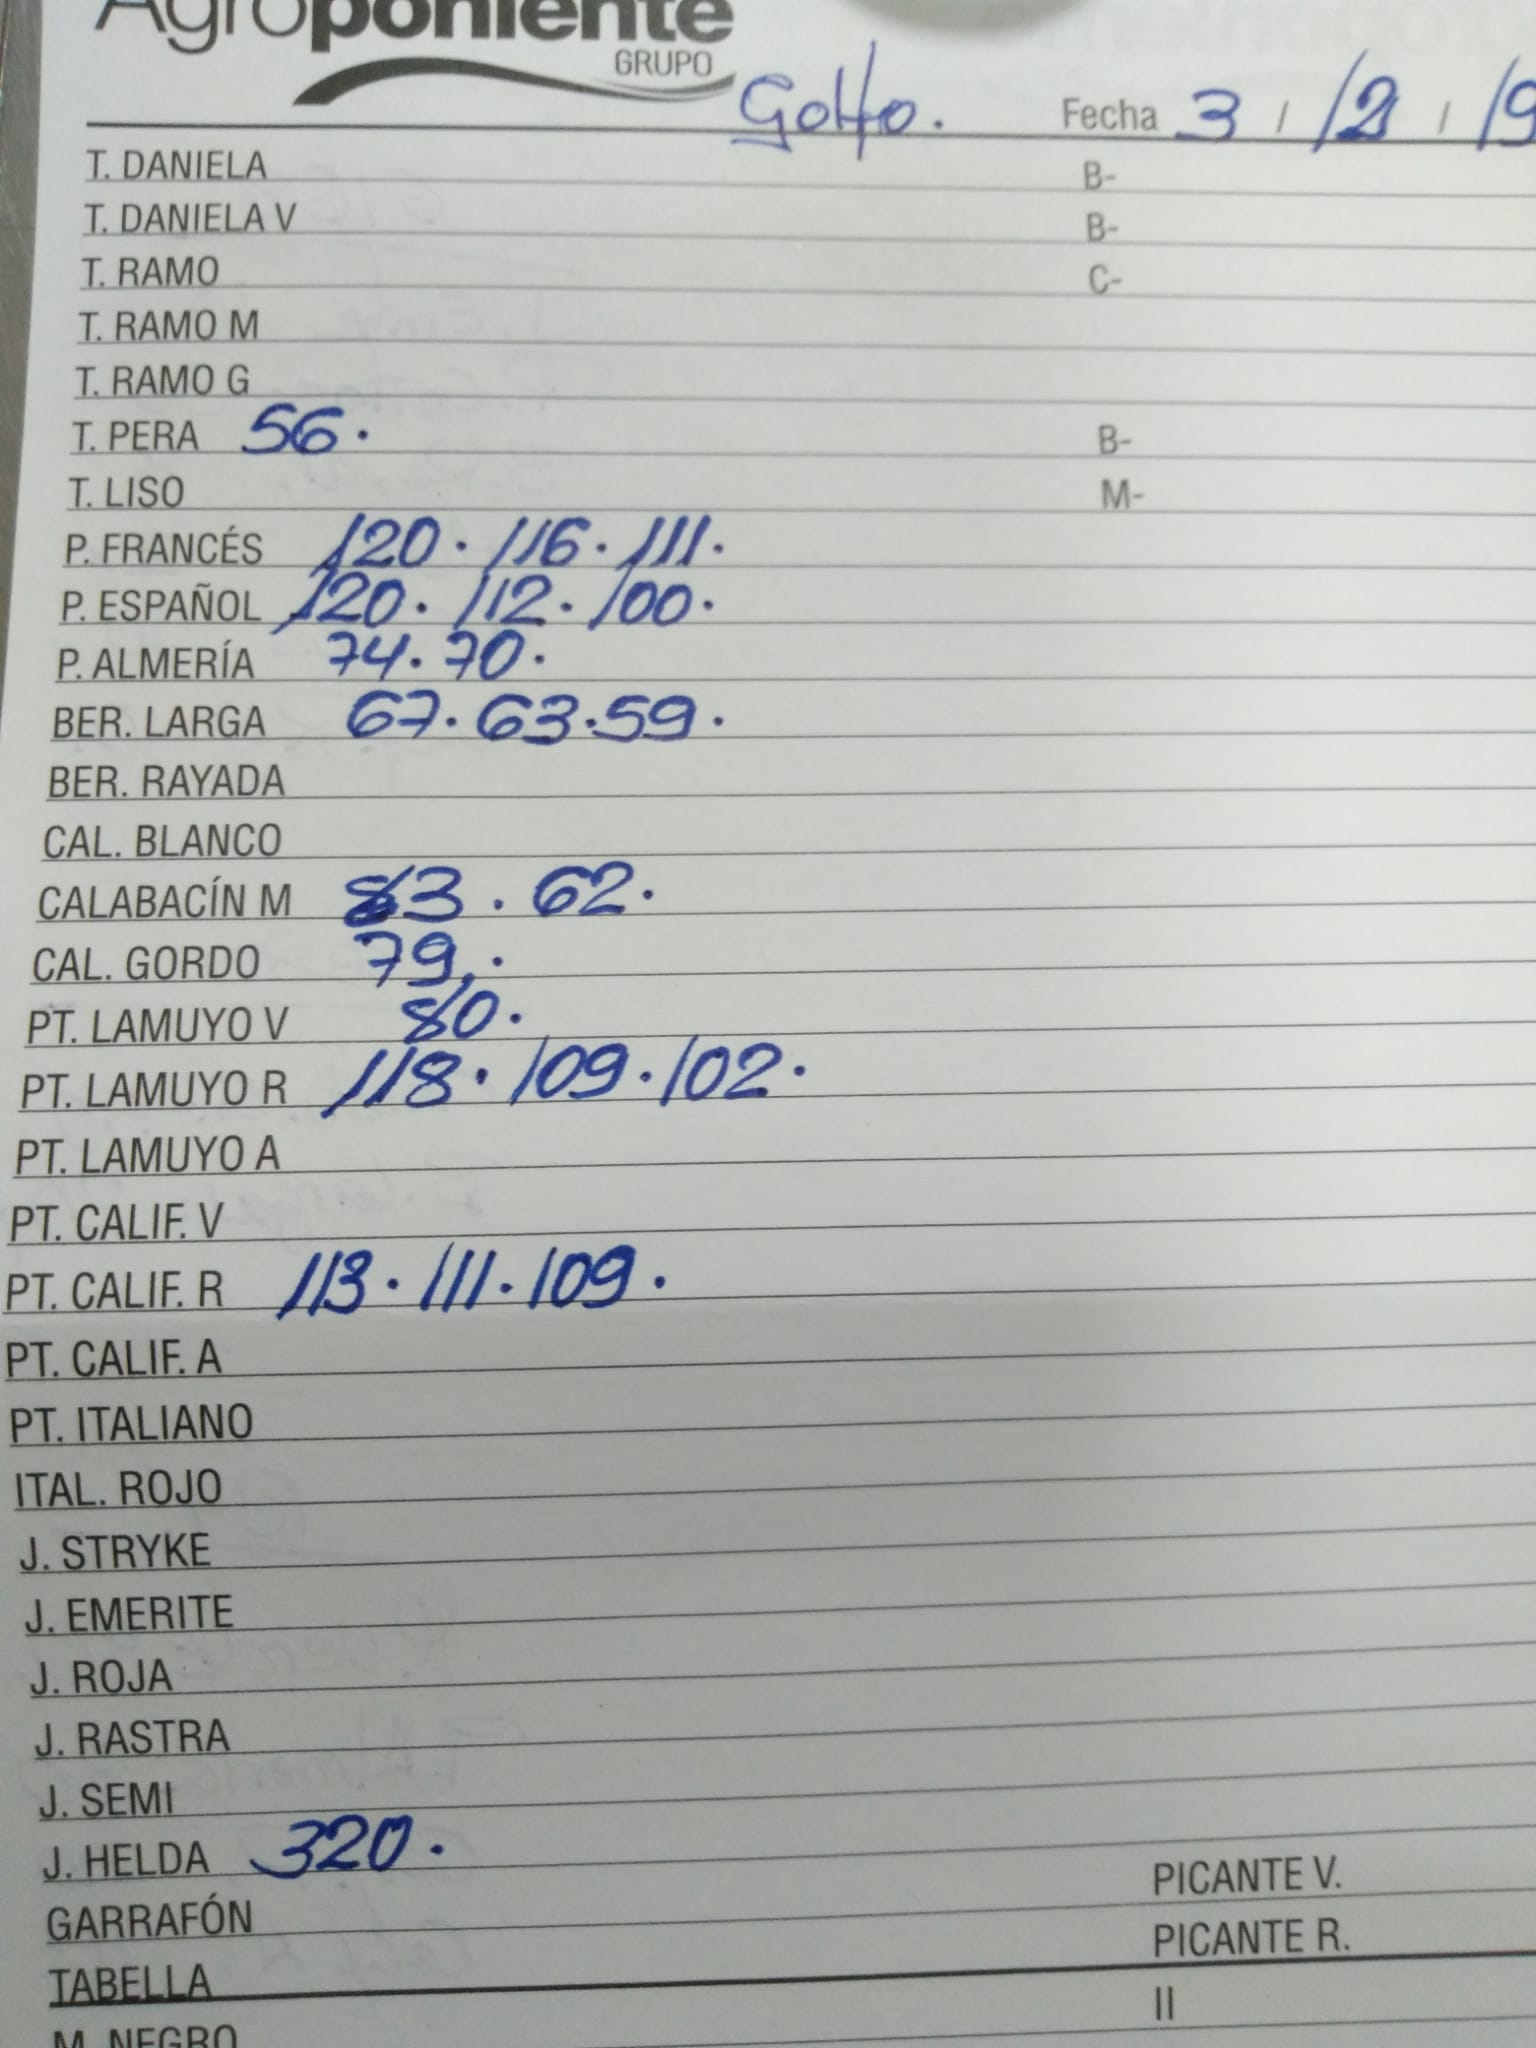 Agroponiente
GRUPO
Golfo. Fecha 3 / 12 / 19
T. DANIELA B-
T. DANIELA V B-
T. RAMO C-
T. RAMO M
T. RAMO G
T. PERA 56. B-
T. LISO M-
P. FRANCÉS 120. 116. 111.
P. ESPAÑOL 120. 112. 100.
P. ALMERÍA 74. 70.
BER. LARGA 67. 63. 59.
BER. RAYADA
CAL. BLANCO
CALABACÍN M 83. 62.
CAL. GORDO 79.
PT. LAMUYO V 80.
PT. LAMUYO R 118. 109. 102.
PT. LAMUYO A
PT. CALIF. V
PT. CALIF. R 113. 111. 109.
PT. CALIF. A
PT. ITALIANO
ITAL. ROJO
J. STRYKE
J. EMERITE
J. ROJA
J. RASTRA
J. SEMI
J. HELDA 320.
PICANTE V.
GARRAFÓN
PICANTE R.
TABELLA
II
M. NEGRO